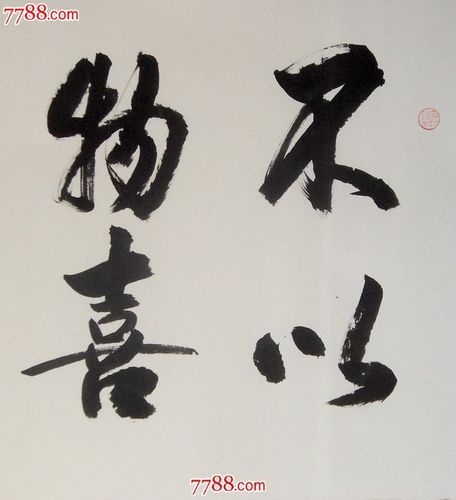 7788.com
不以
物喜
7788.com